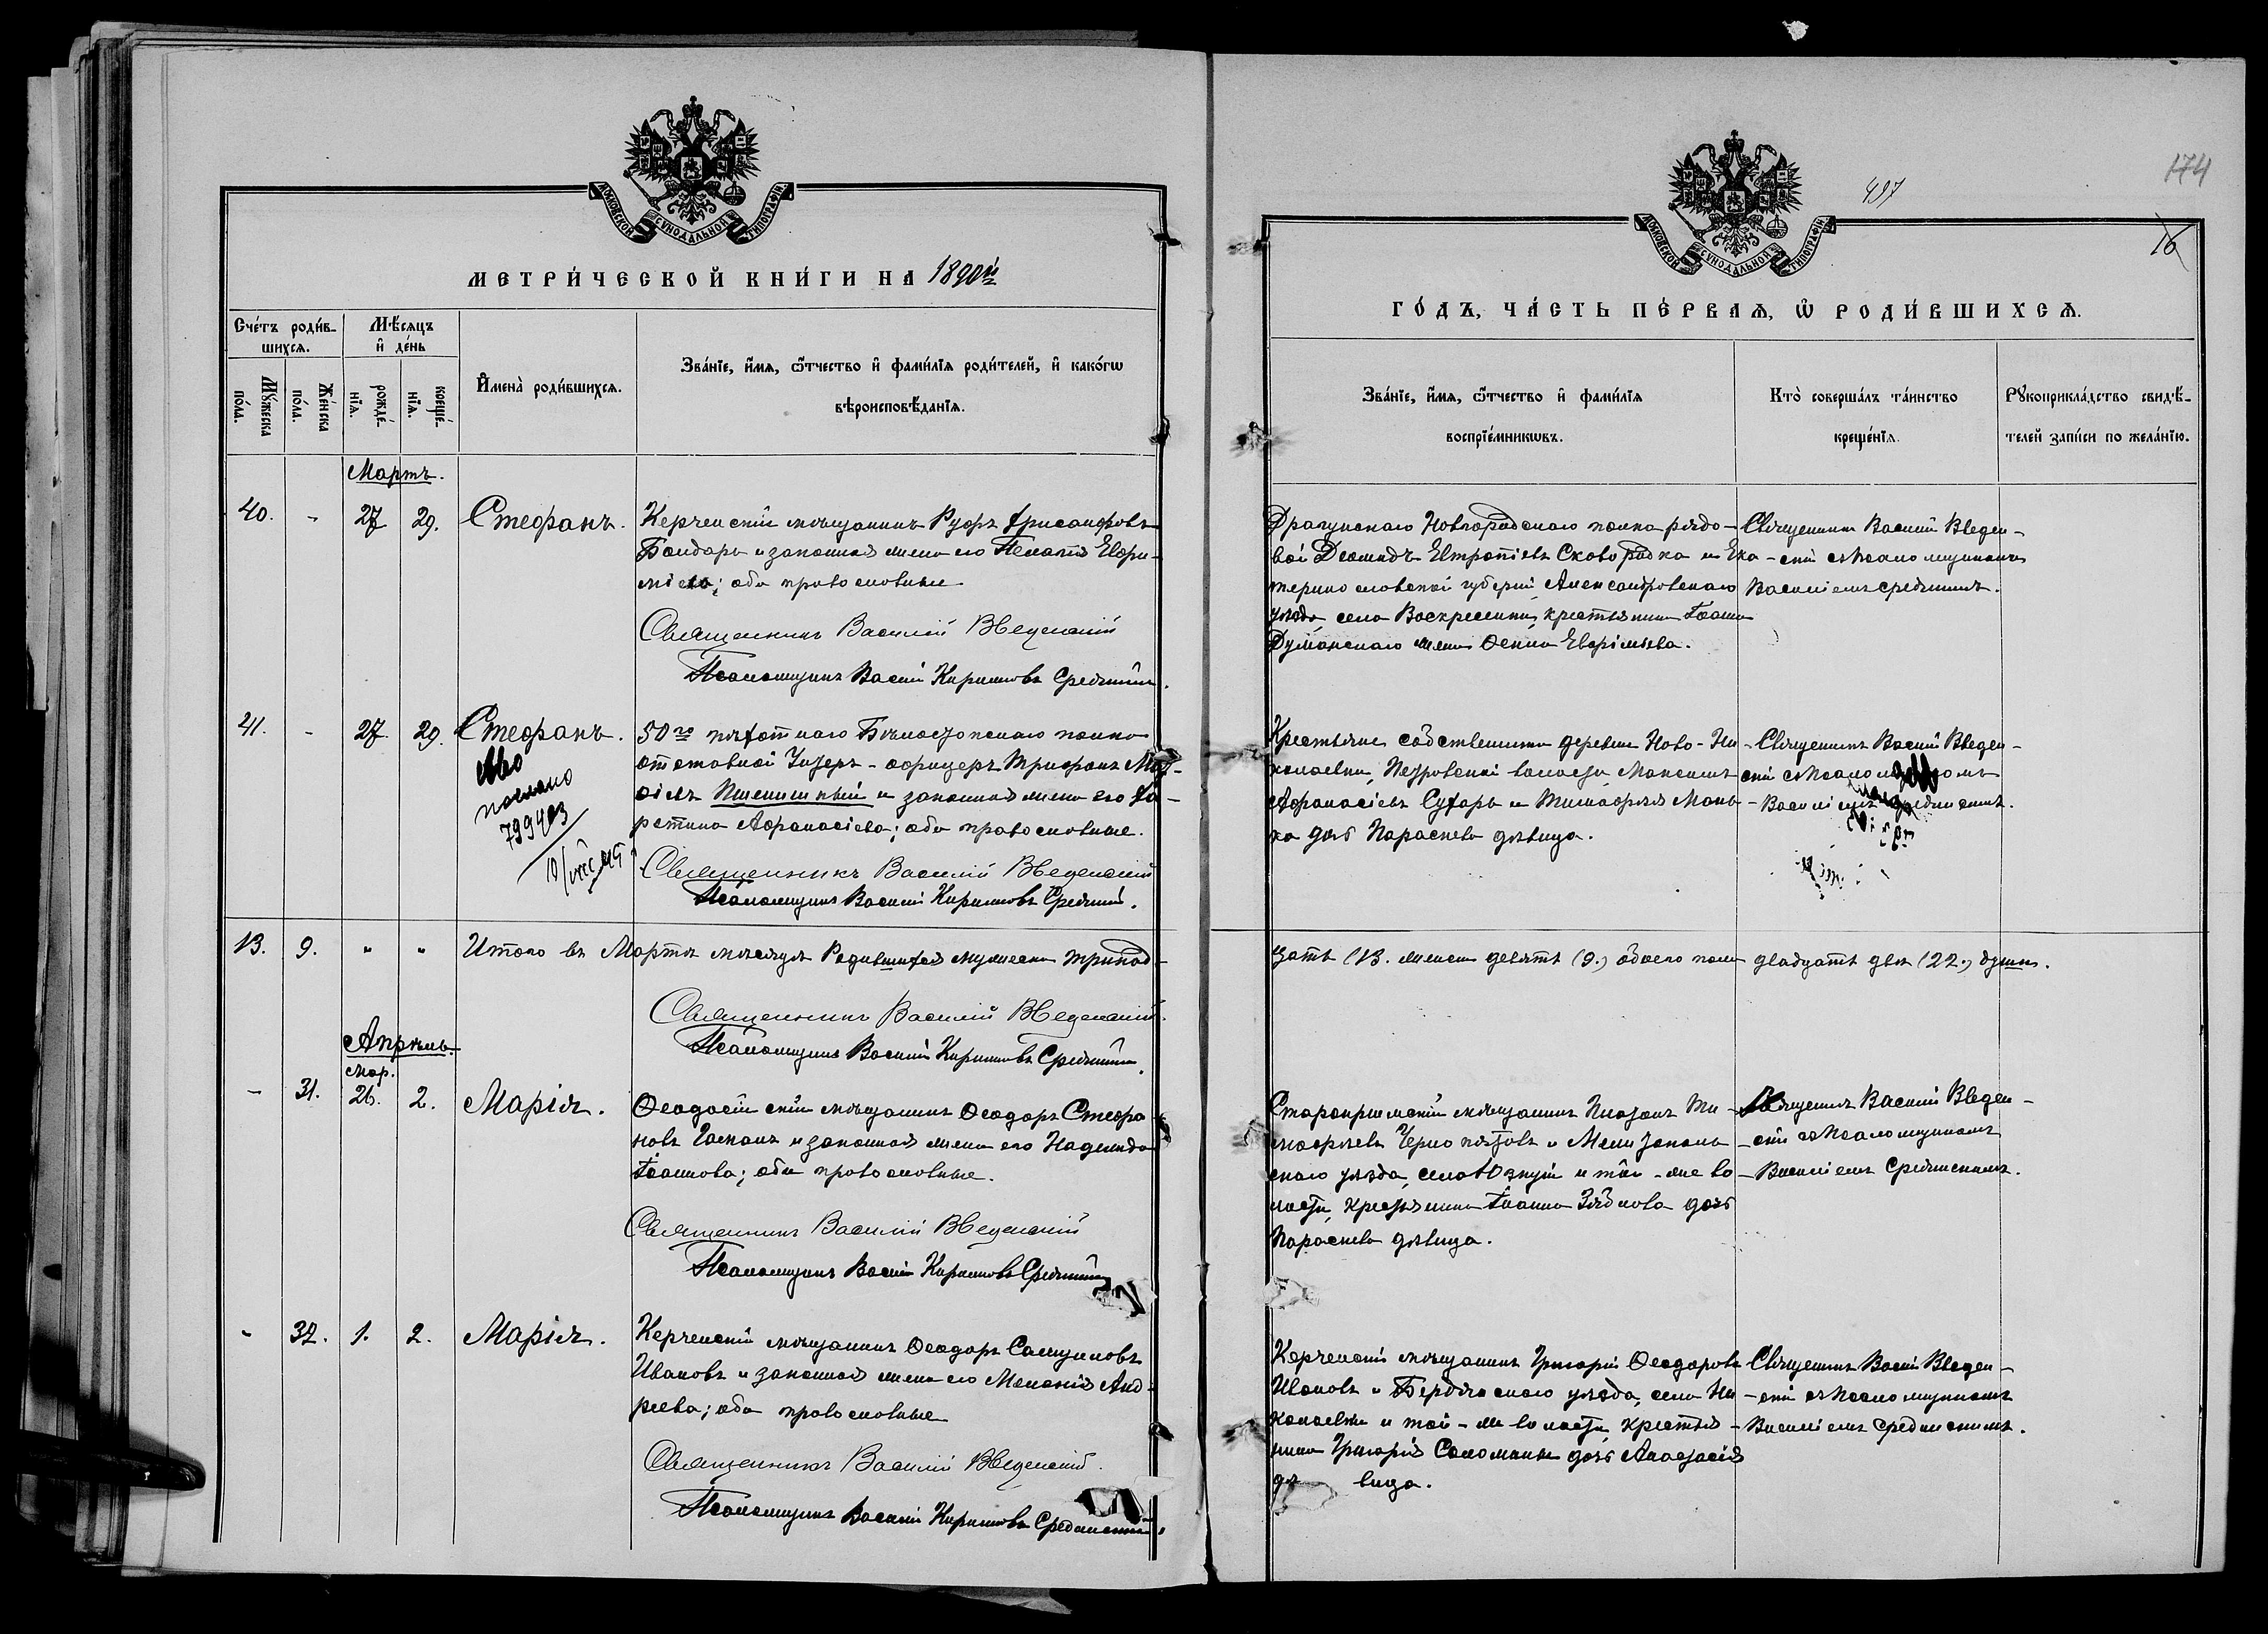 МОСКОВСКОЙ СѴНОДАЛЬНОЙ ТИПОГРАФІИ
МЕТРИ́ЧЕСКОЙ КНИ́ГИ НА 1890й
Сче́тъ роди́в-
шихсѧ.
Мѣ́сѧцъ
и҆ де́нь
Мꙋ́жеска
по́ла.
Же́нска
по́ла.
рожде́-
нїѧ.
креще́-
нїѧ.
И҆мена̀ роди́вшихсѧ.
Зва́нїе, и҆́мѧ, ѻ҆́тчество и҆ фами́лїѧ роди́телей, и҆ како́гѡ
вѣроисповѣ́данїѧ.
Мартъ.
40. - 27 29. Стефанъ.
Керченскій мѣщанинъ
Бондарь и законная жена его Пелагія Евфи-
міева; оба православные
Священникъ Василій Введенскій
Псаломщикъ Василій Кирилловъ Срединскій.
41. - 27. 29. Стефанъ.
послано
799403
50го пѣхотнаго Бѣлостокскаго полка
отставной Унтеръ-офицеръ Трифонъ Мой-
сіевъ Пшеничный и законная жена его Ха-
ритина Афанасіева; оба православные.
Священникъ Василій Введенскій
Псаломщикъ Василій Кирилловъ Срединскій.
13. 9. " " Итого въ Мартѣ мѣсяцѣ Родившихся мужеска тринад-
Священникъ Василій Введенскій
Псаломщикъ Василій Кирилловъ Срединскій.
Апрѣль.
Мар.
- 31. 26. 2. Марія.
Ѳеодосійскій мѣщанинъ Ѳеодоръ Стефа
новъ и законная жена его Надежда
Іоаннова; оба православные.
Священникъ Василій Введенскій
Псаломщикъ Василій Кирилловъ Срединскій
- 32. 1. 2. Марія.
Керченскій мѣщанинъ Ѳеодоръ
Ивановъ и законная жена его Меланія Анд-
реева; оба православные
Священникъ Василій Введенскій.
Псаломщикъ Василій Кирилловъ Срединскій.
174
497
16
МОСКОВСКОЙ СѴНОДАЛЬНОЙ ТИПОГРАФІИ
ГО́ДЪ, ЧА́СТЬ ПЕ́РВАѦ, Ѡ҆ РОДИ́ВШИХСѦ.
Зва́нїе, и҆́мѧ, ѻ҆́тчество и҆ фами́лїѧ
воспрїе́мникѡвъ.
Кто̀ соверша́лъ та́инство
креще́нїѧ.
Рꙋкоприкла́дство свидѣ́-
телей за́писи по жела́нїю.
Драгунскаго Новгородскаго полка рядо-
вой Діомидъ Евтропіевъ Сковородка и Ека-
теринославской губерніи, Александровскаго
уѣзда, села Воскресенки, крестьянина Іоанна
Думанскаго жена Ѳекла Евфиміева.
Священникъ Василій Введен-
скій съ псаломщикомъ
Василіемъ Срединскимъ.
Крестьяне собственники деревни Ново-Ни-
колаевки, Петровской волости Максимъ
Афанасіевъ Сухарь и Тимофея Мань-
ко дочь Параскева дѣвица.
Священникъ Василій Введен-
скій съ псаломщикомъ
Василіемъ Срединскимъ.
цать (13. женска девять (9.) обоего пола двадцать два (22.) душъ.
Старокрымскій мѣщанинъ Платонъ Ти-
мофѣевъ и Мелитополь-
скаго уѣзда, села и той-же во-
лости, крестьянина Іоанна Зябкова дочь
Параскева дѣвица.
Священникъ Василій Введен-
скій съ псаломщикомъ
Василіемъ Срединскимъ.
Керченскій мѣщанинъ Григорій Ѳеодоровъ
Ивановъ и Бердянскаго уѣзда, села Ни-
колаевки и той-же волости, крестья-
нина Григорія дочь Анастасія
дѣвица.
Священникъ Василій Введен-
скій съ псаломщикомъ
Василіемъ Срединскимъ.